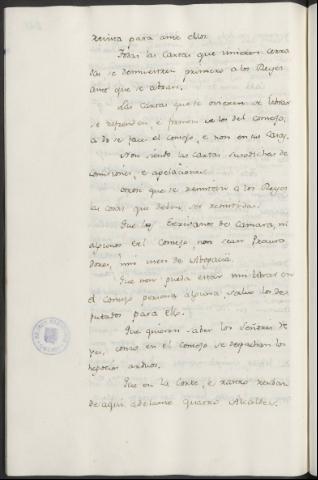 revista para ante ellos.
Todas las Cartas que vinieren cerra
das se demuestren primero a los Reyes
antes que se abran.
Las Cartas que se ovieren de librar
se refrenden, e firmen de los del Consejo,
a do se face el Consejo, e non en sus Casas.
Non siendo las cartas susodichas de
comisiones, e apelaciones.
Cosas que se remitirán a los Reyes
las cosas que deben ser remitidas.
Que los Escrivanos de Camara, ni
algunos del Consejo, non sean Procura
dores, nin usen de Abogacia.
Que non pueda estar nin librar en
el Consejo persona alguna, salvo los de
putados para ello.
Que quieren saber los Señores Re
yes, como en el Consejo se despachan los
negocios arduos.
Que en la Corte, e rastro residan
de aqui adelante quatro Alcaldes.